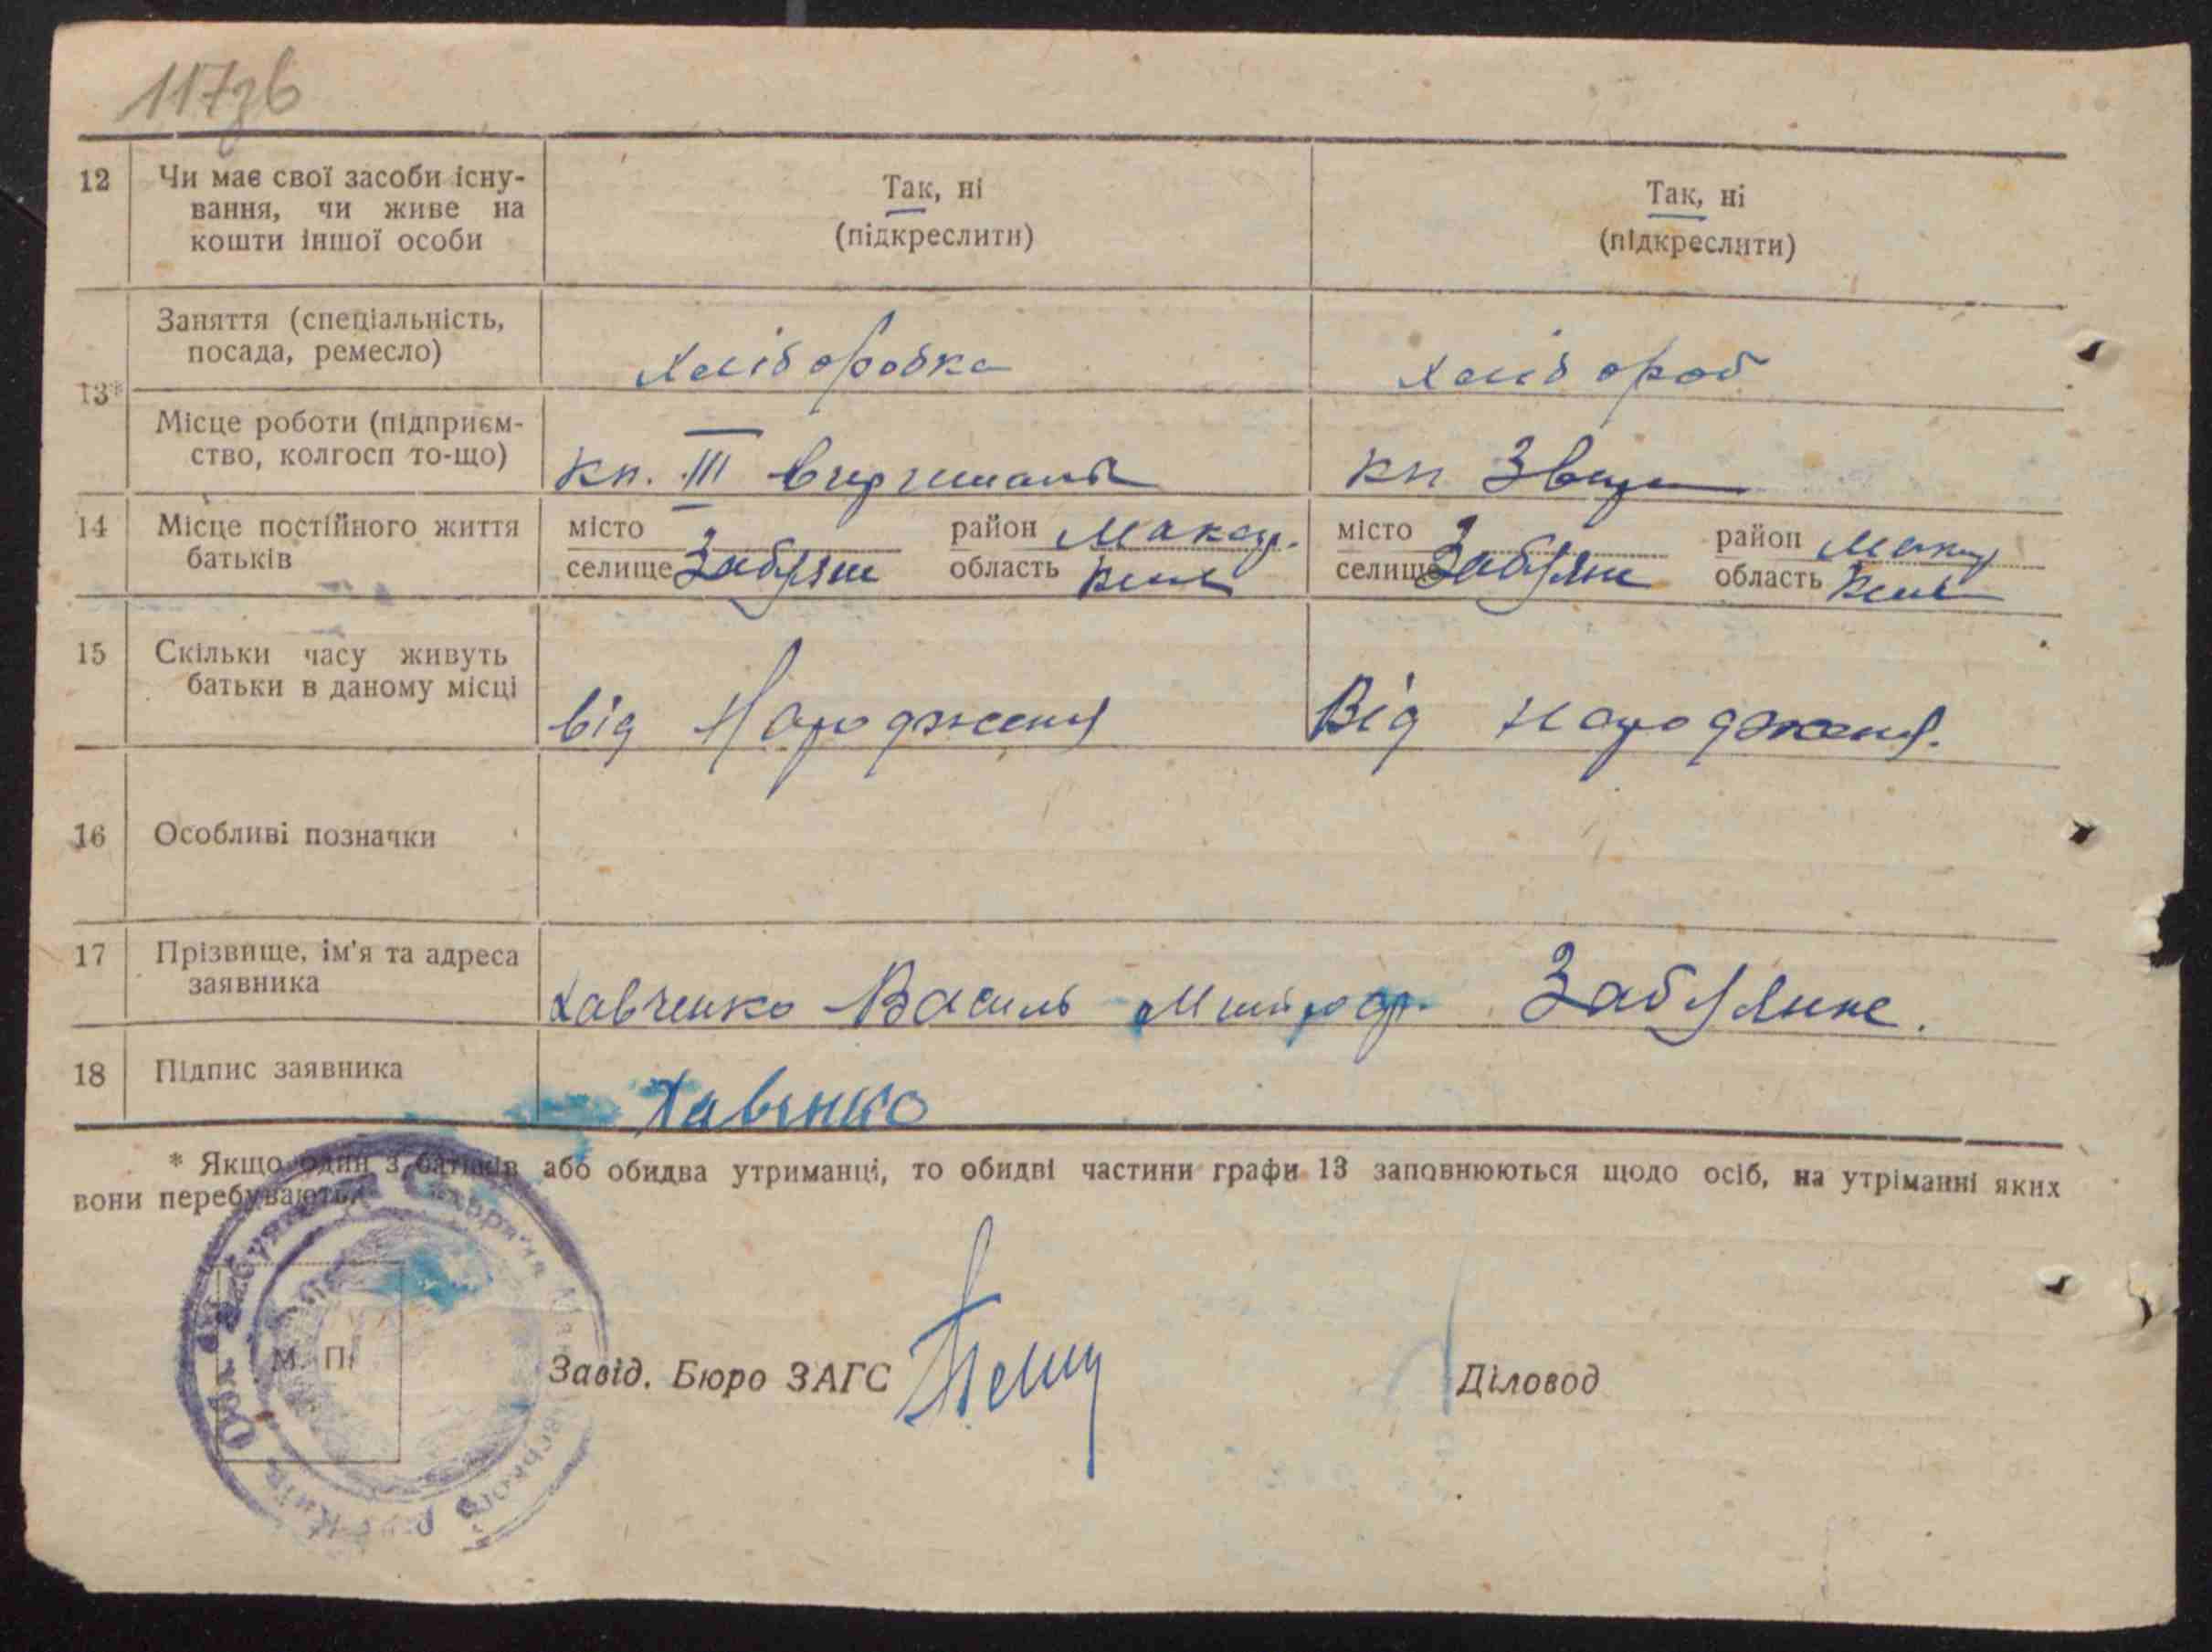 117зв
12 Чи має свої засоби існу-
вання, чи живе на
кошти іншої особи
Так, ні
(підкреслити)
Так, ні
(підкреслити)
13*
Заняття (спеціальність,
посада, ремесло)
хліборобка
хлібороб
Місце роботи (підприєм-
ство, колгосп то-що)
кп. III
кп
14 Місце постійного життя
батьків
місто
селище Забуян
район Макар.
область Київ
місто
селище Забуян
район Макар
область Київ
15 Скільки часу живуть
батьки в даному місці
від Народженя
Від народженя.
16 Особливі позначки
17 Прізвище, ім'я та адреса
заявника
Хавченко Василь Забуяння.
18 Підпис заявника
Хавенко
* Якщо один з батьків або обидва утриманці, то обидві частини графи 13 заповнюються щодо осіб, на утріманні яких
вони перебувають.
М. П.
Завід. Бюро ЗАГС
Діловод